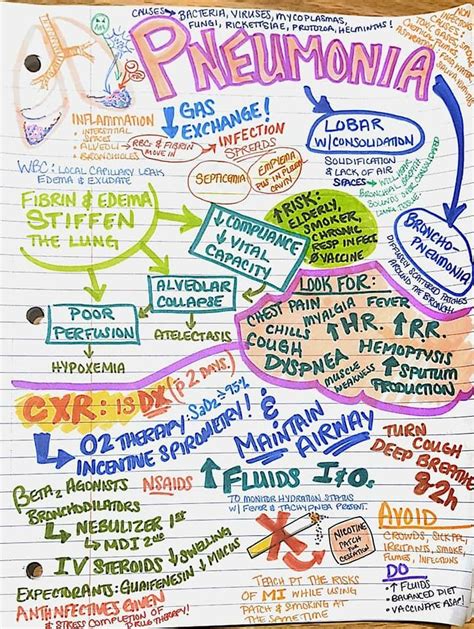 CAUSES → BACTERIA, VIRUSES, MYCOPLASMAS,
FUNGI, RICKETTSIAE, PROTOZOA, HELMINTHS!
PNEUMONIA
INFLAMMATION
• INTERSTITIAL
SPACES
• ALVEOLI → RBCs & FIBRIN
MOVE IN
• BRONCHIOLES
↓ GAS
EXCHANGE!
→ INFECTION
SPREADS
SEPTICEMIA
EMPYEMA
PUS IN PLEURAL
CAVITY
LOBAR
W/CONSOLIDATION
SOLIDIFICATION
& LACK OF AIR
SPACES
BRONCHO-
PNEUMONIA
DIFFUSELY SCATTERED PATCHES
AROUND THE BRONCHI
WBC: LOCAL CAPILLARY LEAK
EDEMA & EXUDATE
FIBRIN & EDEMA
STIFFEN
THE LUNG
↓ COMPLIANCE
↓ VITAL
CAPACITY
↑ RISK:
ELDERLY,
SMOKER,
CHRONIC
RESP INFECT
Ø VACCINE
ALVEOLAR
COLLAPSE
ATELECTASIS
POOR
PERFUSION
HYPOXEMIA
LOOK FOR:
CHEST PAIN
MYALGIA
FEVER
CHILLS
↑ H.R.
↑ RR.
COUGH
HEMOPTYSIS
DYSPNEA
MUSCLE
WEAKNESS
↑ SPUTUM
PRODUCTION
CXR: IS DX (p̄ 2 DAYS)
O2 THERAPY: SaO2 ≥ 95%
INCENTIVE SPIROMETRY! &
MAINTAIN
AIRWAY
TURN
COUGH
DEEP BREATHE
q2h
BETA2 AGONISTS
BRONCHODILATORS
↳ NEBULIZER 1ST
↳ MDI 2ND
NSAIDS
↑ FLUIDS I&O's
TO MONITOR HYDRATION STATUS
W/ FEVER & TACHYPNEA PRESENT.
IV STEROIDS ↓ SWELLING
EXPECTORANTS: GUAIFENESIN ↓ MUCUS
ANTIINFECTIVES GIVEN
& STRESS COMPLETION OF
DRUG THERAPY!
NICOTINE
PATCH
CESSATION
TEACH PT THE RISKS
OF MI WHILE USING
PATCH & SMOKING AT
THE SAME TIME.
AVOID
CROWDS, SICK PPL,
IRRITANTS, SMOKE,
FUMES, INFECTIONS
DO
• ↑ FLUIDS
• BALANCED DIET
• VACCINATE ASAP!